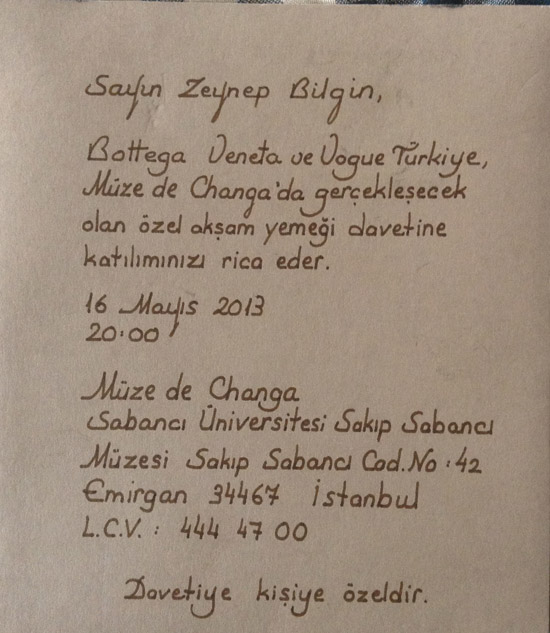 Sayın Zeynep Bilgin,
Bottega Veneta ve Vogue Türkiye,
Müze de Changa'da gerçekleşecek
olan özel akşam yemeği davetine
katılımınızı rica eder.
16 Mayıs 2013
20:00
Müze de Changa
Sabancı Üniversitesi Sakıp Sabancı
Müzesi Sakıp Sabancı Cad. No:42
Emirgan 34467 İstanbul
L.C.V. : 444 47 00
Davetiye kişiye özeldir.